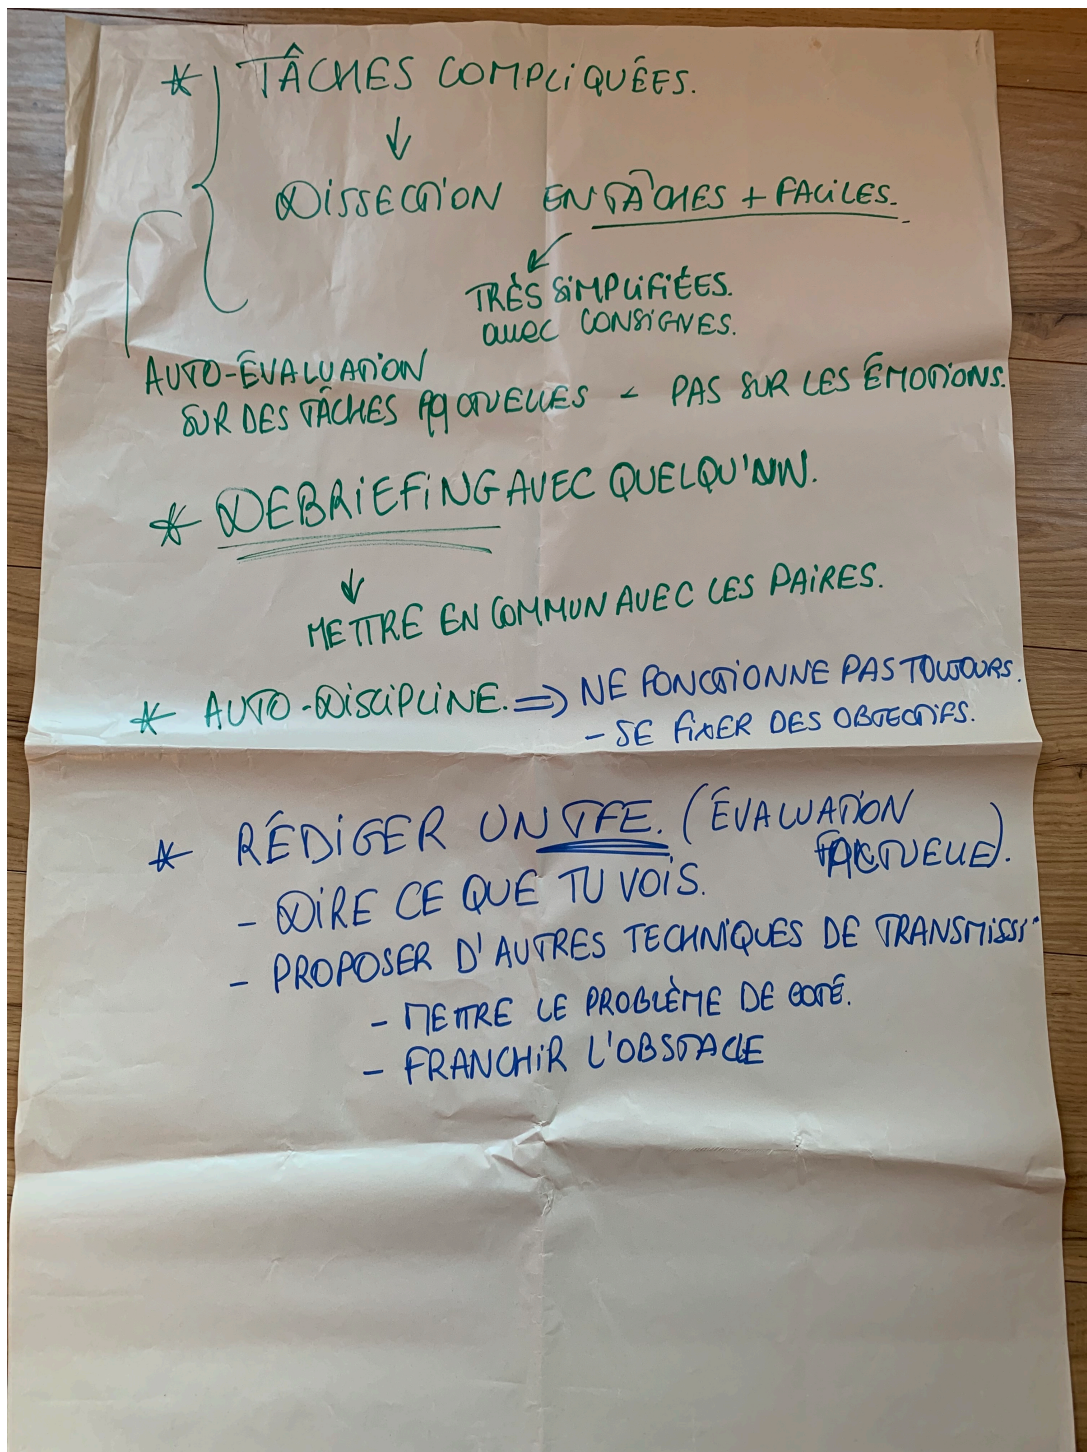 * TÂCHES COMPLIQUÉES.
↓
DISSECTION EN TÂCHES + FACILES.
TRÈS SIMPLIFIÉES.
avec CONSIGNES.
AUTO-ÉVALUATION
SUR DES TÂCHES - PAS SUR LES ÉMOTIONS.
* DEBRIEFING AVEC QUELQU'UN.
↓
METTRE EN COMMUN AVEC LES PAIRES.
* AUTO-DISCIPLINE. ⇒ NE FONCTIONNE PAS TOUJOURS.
- SE FIXER DES OBJECTIFS.
* RÉDIGER UN TFE. (ÉVALUATION
FACTUELLE).
- DIRE CE QUE TU VOIS.
- PROPOSER D'AUTRES TECHNIQUES DE TRANSMISS°
- METTRE LE PROBLÈME DE COTÉ.
- FRANCHIR L'OBSTACLE